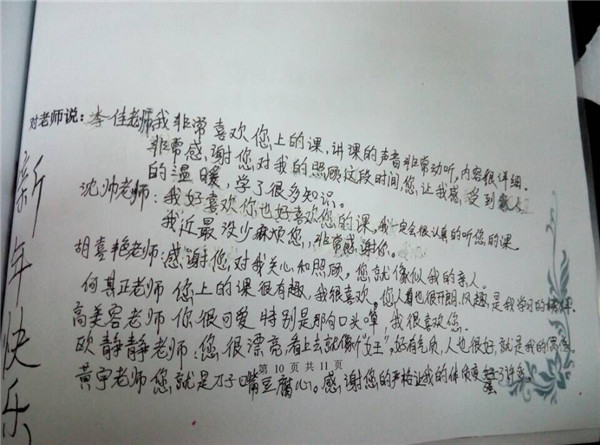 对老师说：李佳老师，我非常喜欢您上的课，讲课的声音非常动听，内容很详细。
非常感谢您对我的照顾这段时间，您让我感受到亲人
的温暖，学了很多知识。
沈帅老师：我好喜欢你也好喜欢您的课，我一定会很认真的听您的课。
我近最没少麻烦您，非常感谢你。
胡喜艳老师：感谢您对我关心和照顾，您就像似我的亲人。
何真正老师 您上的课很有趣，我很喜欢，您人看也很开朗、风趣是我学习的榜样。
高美容老师 你很可爱 特别是那句口头禅，我很喜欢您。
欧静静老师：您很漂亮，看上去就像个"女王"，好有气质，人也很好，就是我的偶像
黄宇老师 您就是刀子嘴豆腐心。感谢您的严格让我的体质变了许多。
第 10 页 共 11 页
新年快乐